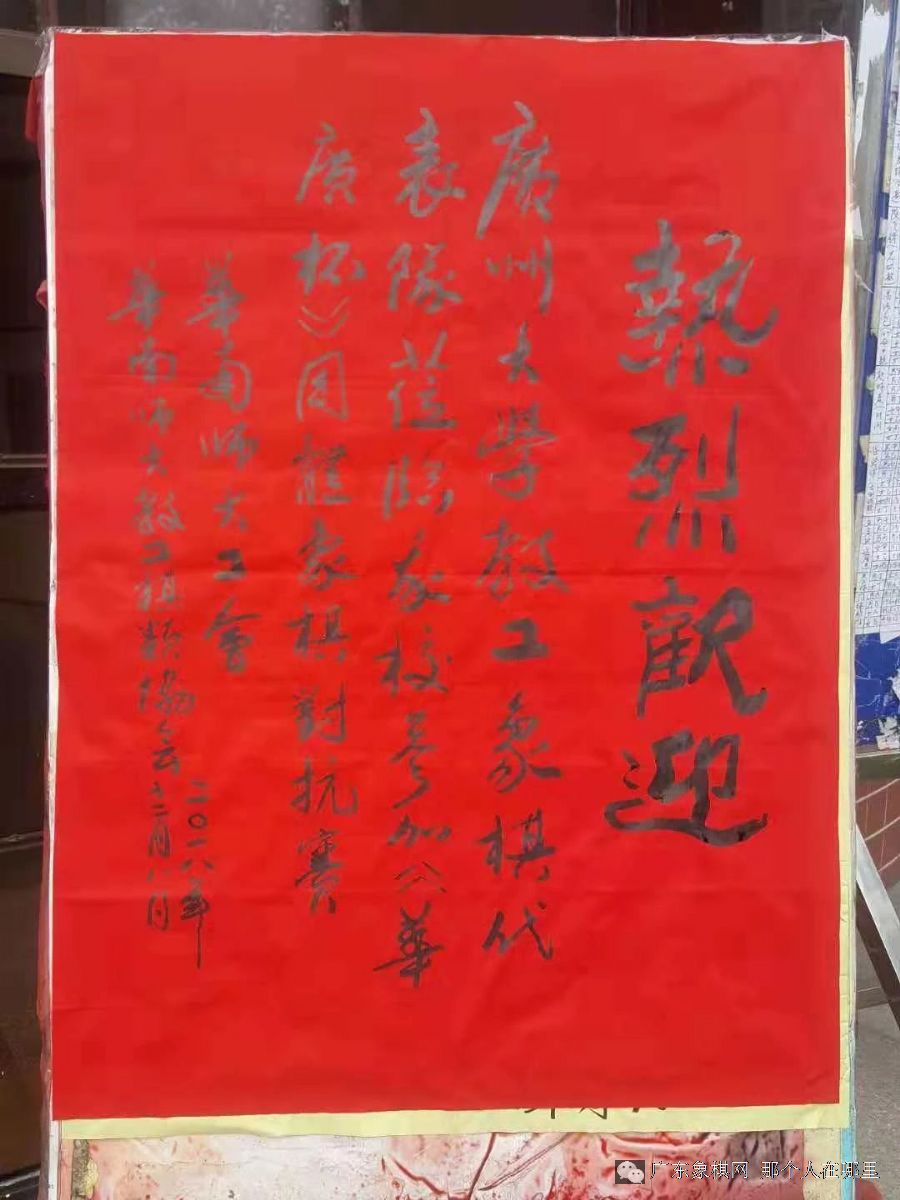 熱烈歡迎
廣州大學教工象棋代
表隊蒞臨我校參加《華
廣杯》团體象棋對抗賽
華南师大工會
華南师大教工棋類協会
二〇一八年
十二月八日
广东象棋网 那个人在那里